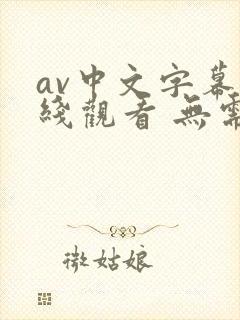 av中文字幕
綫觀看 無需
微姑娘